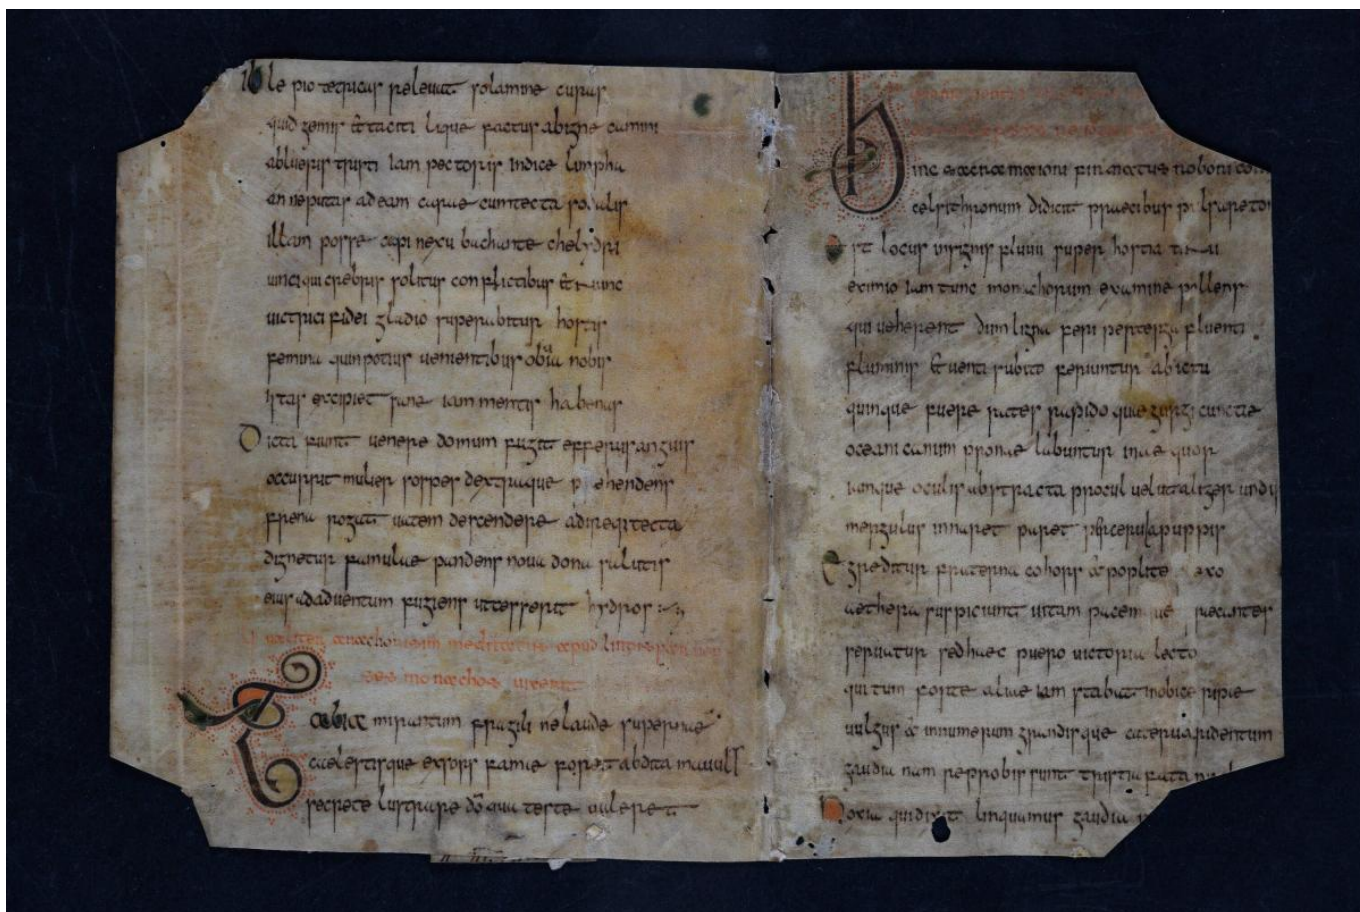 ille pio tetricas releuat solamine curas
quid gemis et tacita lique factus abigne camini
ablueris tristi iam pectoris indice limpha
an ne putas ad eam curae cum tecta sodalis
illam posse capi nexu bachante chelydri
uinci qui crebris solitus conflictibus et nunc
uictrici fidei gladio superabitur hostis
femina quin potius uenientibus obuia nobis
istas excipiet sane iam mentis habenas
Dicta fiunt uenere domum fugit efferus anguis
occurrit mulier sospes dextraque p ehendens
frena rogat uatem descendere adireq; tecta
dignetur famulae pandens noua dona salutis
eius adaduentum fugiens utcesserit hydros
qualiter anachoresim meditatus apud
ses monachos uixerit
labia mirantum fragili ne laude supernae
caelestisque exors famae foret abdita mauult
secrete lustrare dō qua teste ualeret
hinc
celsithronum didicit praecibus pulsare
Est locus uirginis fluuii super hostia
eximio iam tunc monachorum examine pollens
qui ueherent dum ligna feri per terga fluenti
fluminis et uenti subito feriuntur ab ictu
quinque fuere rates rapido quae gurgi cunctae
oceani canum pronae labuntur in aequor
iamque oculis abstracta procul uelut aliger undis
mergulus innaret paret sic cerula puppis
Egreditur fraterna cohors et poplite exo
aethera suspiciunt uitam pacem precanter
seruatur sed haec puero uictoria lecto
qui tum forte aluae iam stabat in obice ripae
uulgus et innumerum grandisque caterua ridentum
gaudia nam reprobis sunt tristia facta
Noxia quidixit linquamus gaudia